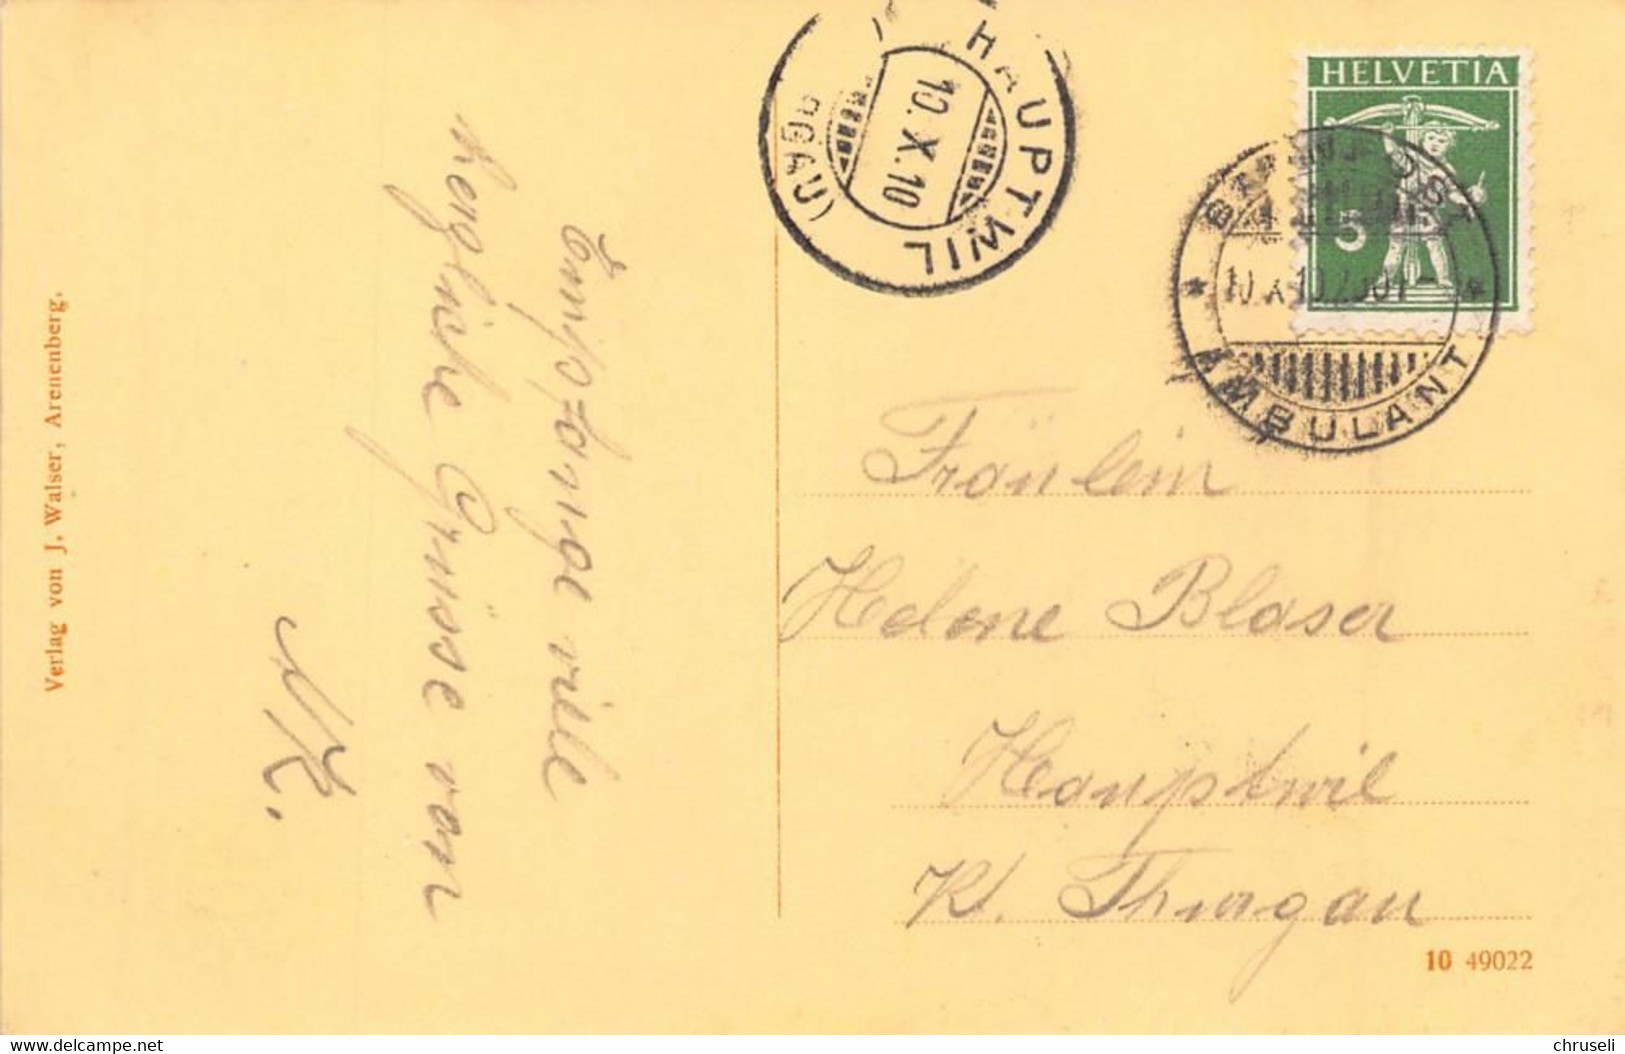 Verlag von J. Walser, Arenenberg.
Empfange viele
herzliche Grüsse von
HAUPTWIL
10.X.10
HELVETIA
5
10.X.10
AMBULANT
Fräulein
Helene Blaser
Hauptwil
Kt. Thurgau
10 49022
delcampe.net
chruseli